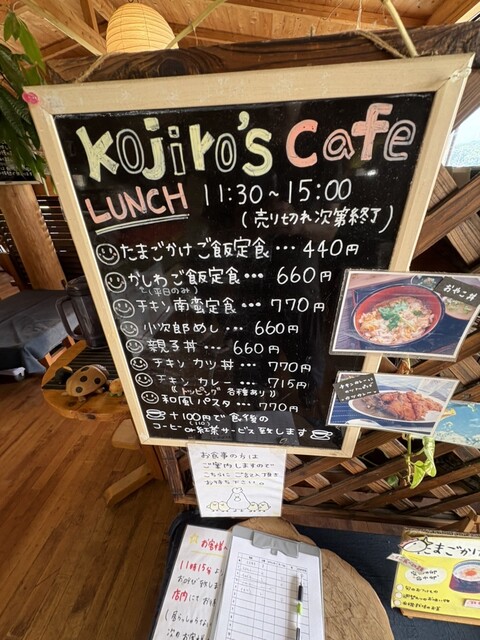 Kojiro's Cafe
LUNCH 11:30~15:00
(売り切れ次第終了)
たまごかけご飯定食…440円
かしわご飯定食…660円
(平日のみ)
チキン南蛮定食…770円
小次郎めし…660円
親子丼…660円
チキンカツ丼…770円
チキンカレー…715円
《トッピング各種あり》
和風パスタ…770円
+100円で食後の
(110)
コーヒーor紅茶サービス致します
おやこ丼
お食事の方は
ご案内しますので
お待ち下さい。
お客様
11時15分
店内
たまごかけ